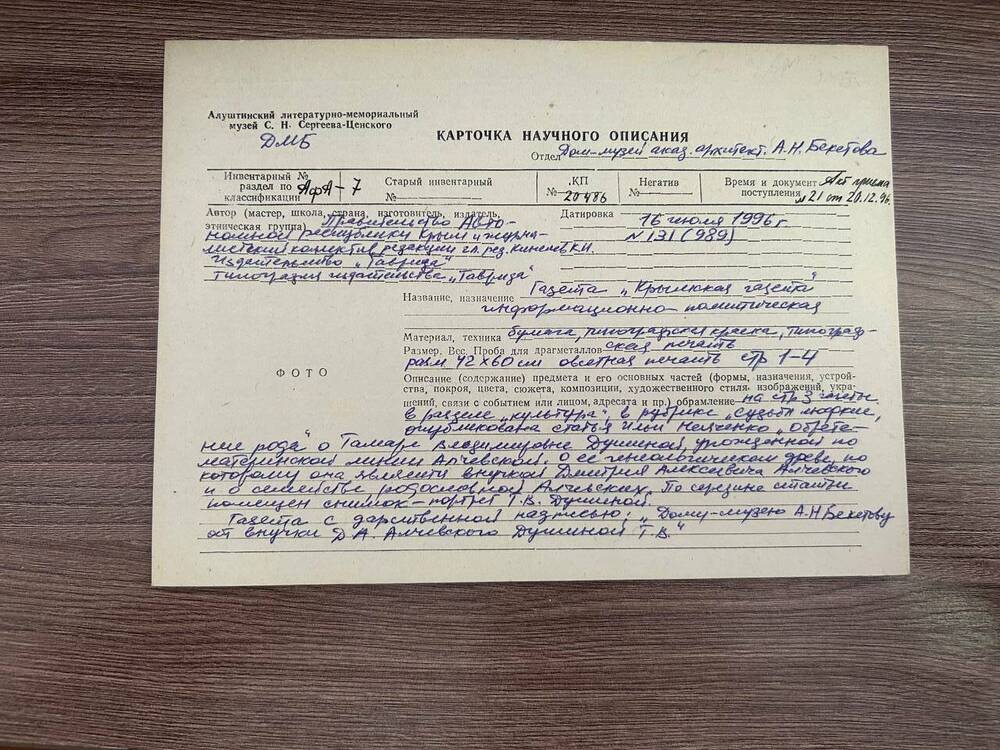 Алуштинский литературно-мемориальный
музей С. Н. Сергеева-Ценского
ДМБ
КАРТОЧКА НАУЧНОГО ОПИСАНИЯ
Отдел Дом-музей акад. архитект. А.Н. Бекетова
Инвентарный №
раздел по
классификации АфА-7
Старый инвентарный
№
КП
№ 20486
Негатив
№
Время и документ Акт приема
поступления №21 от 20.12.96.
Автор (мастер, школа, страна, изготовитель, издатель,
этническая группа) Правительство Авто-
номной республики Крым и журна-
листский коллектив редакции гл. ред.
Издательство „Таврида"
типография издательства „Таврида"
Датировка 16 июля 1996 г
№ 131 (989)
Газета „Крымская газета"
Название, назначение
информационно-политическая
Материал, техника бумага, типографская краска, типограф-
ская печать
Размер. Вес. Проба для драгметаллов
разм 42х60 см офсетная печать стр 1-4
ФОТО
Описание (содержание) предмета и его основных частей (формы, назначения, устрой-
ства, покроя, цвета, сюжета, композиции, художественного стиля, изображений, укра-
шений, связи с событием или лицом, адресата и пр.) обрамление на стр 3 газеты
в разделе „культура", в рубрике „судьбы людские,
опубликована статья Ильи „Обрете-
ние рода" о Тамаре Владимировне Душиной, урожденной по
материнской линии Алчевской, о её генеологическом древе, по
которому она является внучкой Дмитрия Алексеевича Алчевского
и о семействе родословной Алчевских. По середине статьи
помещен снимок-портрет Т.В. Душиной.
Газета с дарственной надписью: „Дому-музею А.Н Бекетову
от внучки Д.А. Алчевского Душиной Т.В."